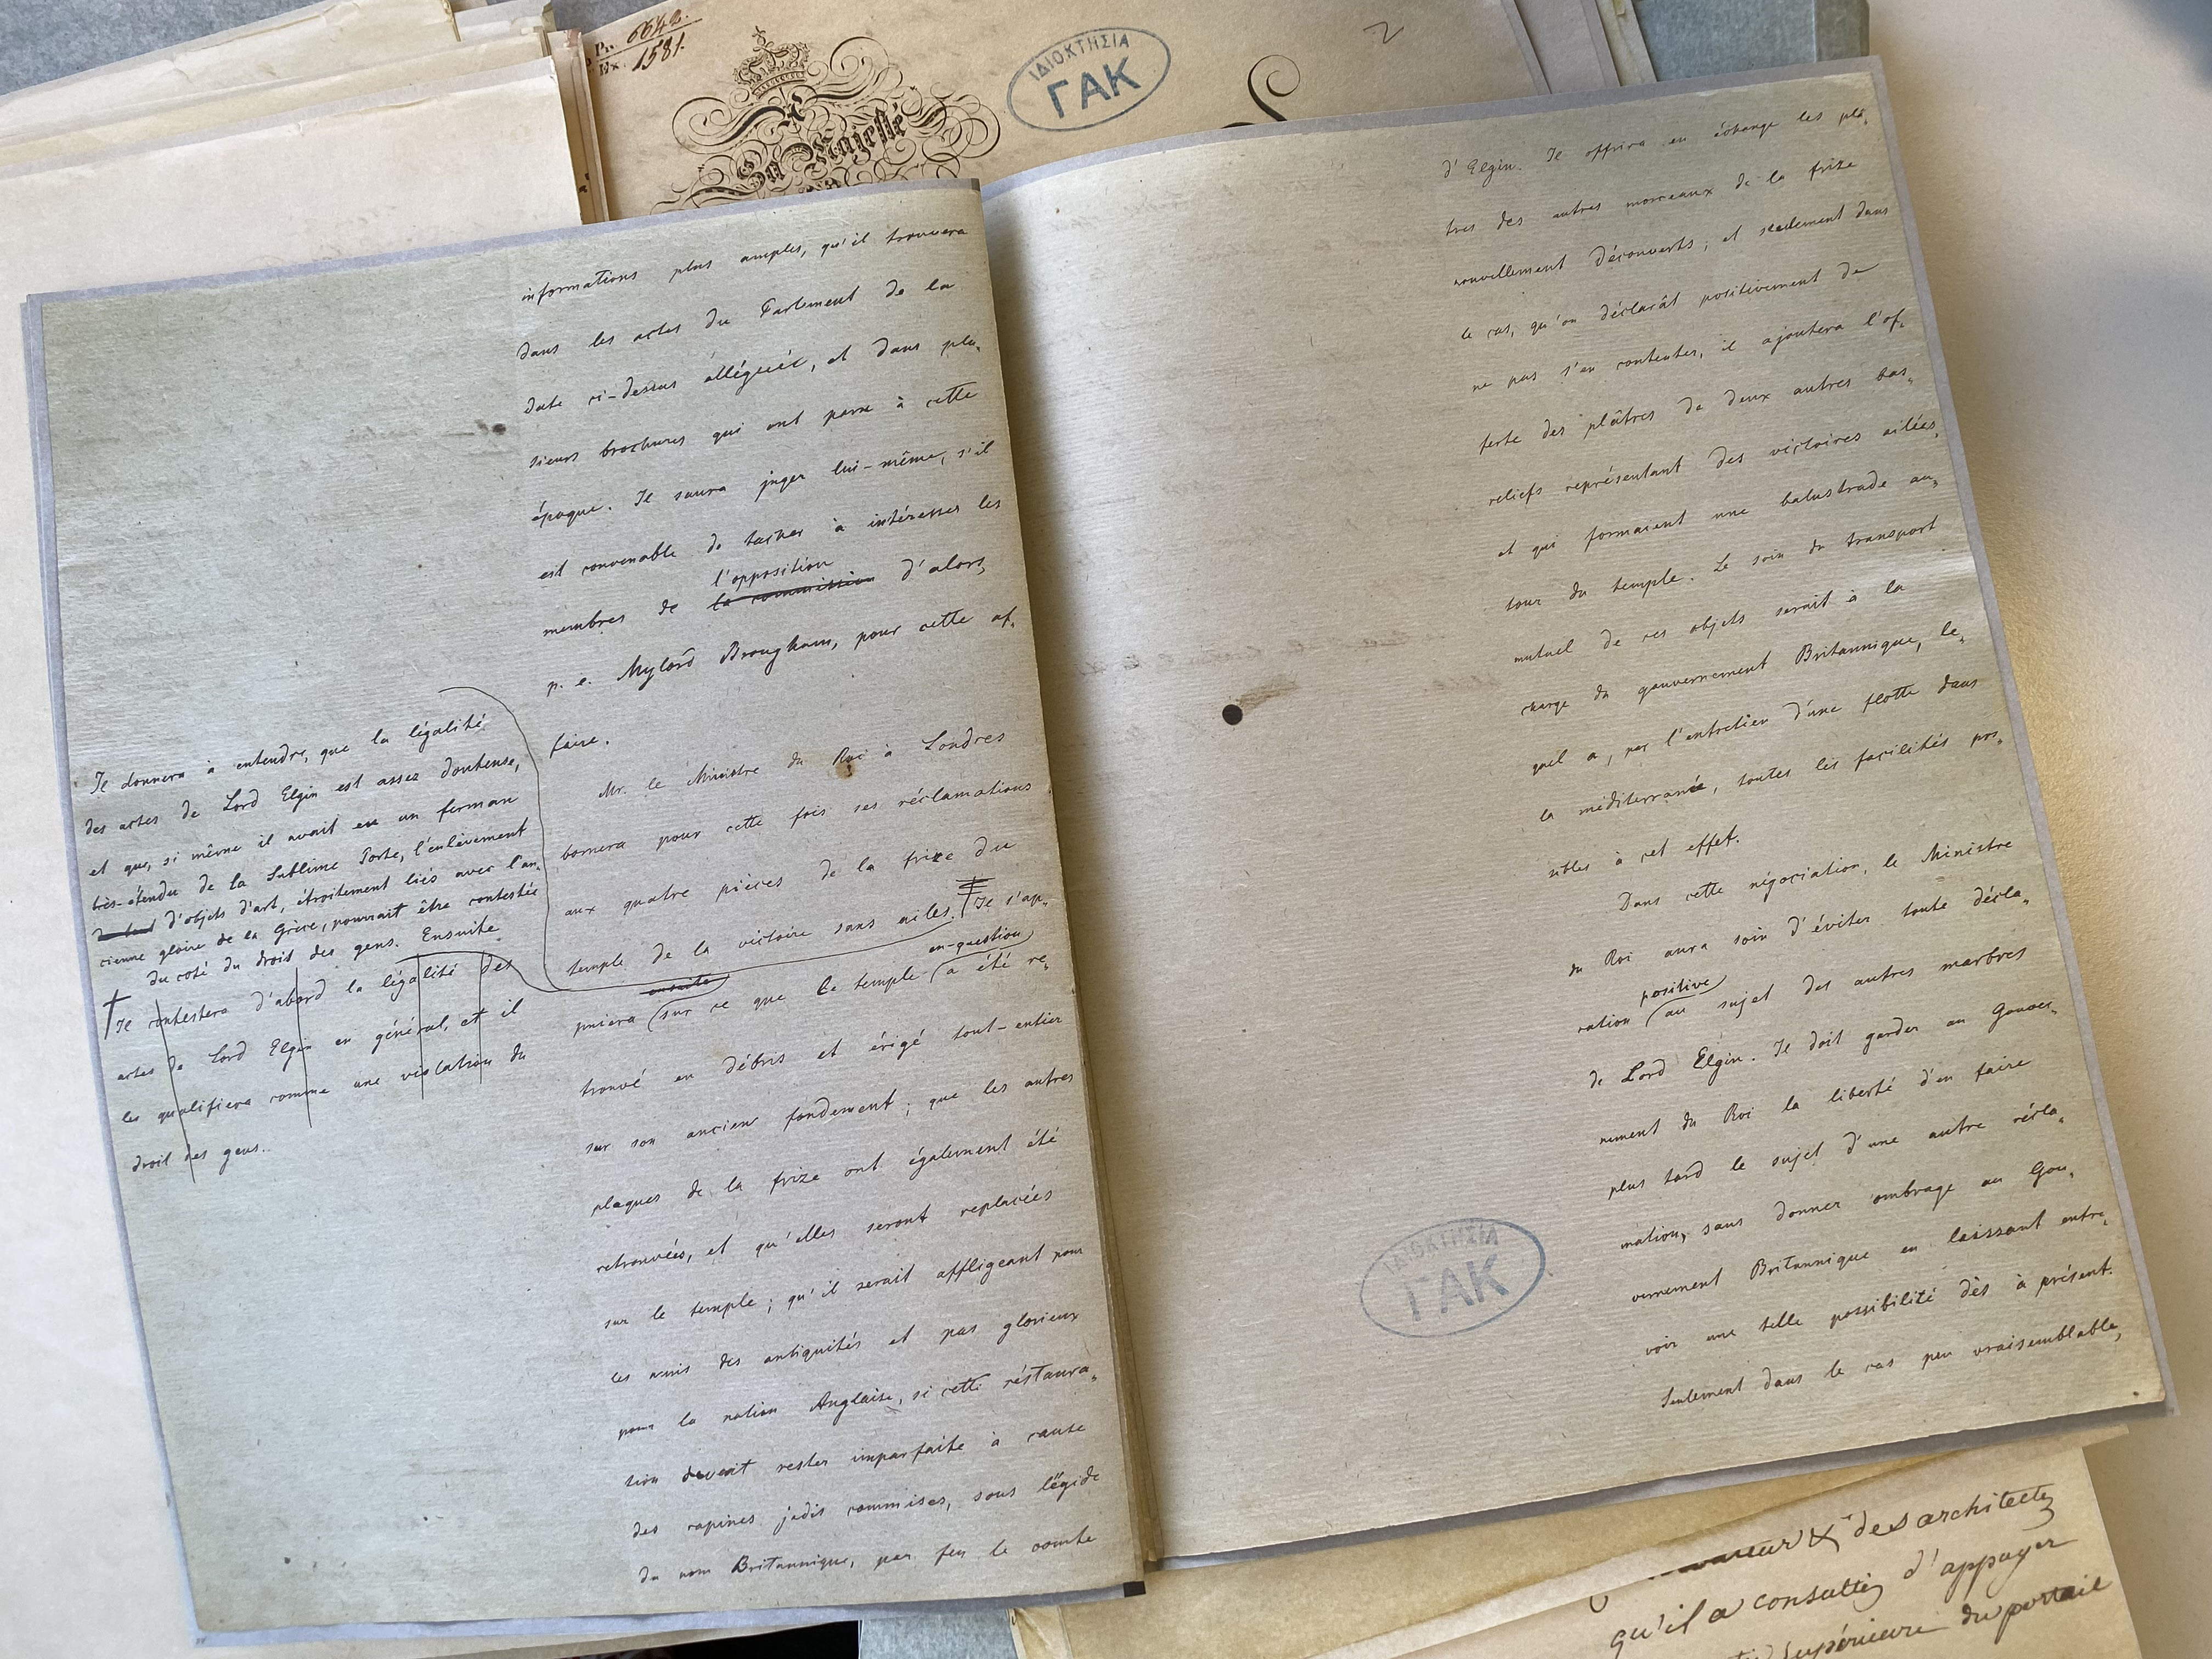 Pr. 6642.
Ex. 1581.
Sa Majesté
ΙΔΙΟΚΤΗΣΙΑ
ΓΑΚ
2
informations plus amples, qu'il trouvera
dans les actes du Parlement de la
date ci-dessus alléguée, et dans plu-
sieurs brochures qui ont paru à cette
époque. Il saura juger lui-même, s'il
est convenable de tacher à intéresser les
l'opposition
membres de la commission d'alors,
p. e. Mylord Brougham, pour cette af-
faire.
Mr. le Ministre du Roi à Londres
bornera pour cette fois ses réclamations
aux quatre pièces de la frize du
temple de la victoire sans ailes. Il s'ap-
ensuite en-question
puiera sur ce que le temple a été re-
trouvé en débris et érigé tout-entier
sur son ancien fondement; que les autres
plaques de la frize ont également été
retrouvées, et qu'elles seront replacées
sur le temple; qu'il serait affligeant pour
les amis des antiquités et pas glorieux
pour la nation Anglaise, si cette réstaura-
tion devait rester imparfaite à cause
des rapines jadis commises, sous l'égide
du nom Britannique, par feu le comte
Il donnera à entendre, que la légalité
des actes de Lord Elgin est assez douteuse,
et que, si même il avait eu un ferman
très-étendu de la Sublime Porte, l'enlèvement
d'objets d'art, étroitement liés avec l'an-
cienne gloire de la Grèce, pourrait être contestée
du coté du droit des gens. Ensuite
Il contestera d'abord la légalité des
actes de Lord Elgin en général, et il
les qualifiera comme une violation du
droit des gens.
d'Elgin. Il offrira en échange les plâ-
tres des autres morceaux de la frize
nouvellement découverts; et seulement dans
le cas, qu'on déclarât positivement de
ne pas s'en contenter, il ajoutera l'of-
ferte des plâtres de deux autres bas-
reliefs représentant des victoires ailées,
et qui formaient une balustrade au-
tour du temple. Le soin du transport
mutuel de ces objets serait à la
charge du gouvernement Britannique, le-
quel a, par l'entretien d'une flotte dans
la méditerranée, toutes les facilités pos-
sibles à cet effet.
Dans cette négociation, le Ministre
du Roi aura soin d'éviter toute décla-
positive
ration au sujet des autres marbres
de Lord Elgin. Il doit garder au Gouver-
nement du Roi la liberté d'en faire
plus tard le sujet d'une autre récla-
mation, sans donner ombrage au Gou-
vernement Britannique en laissant entre-
voir une telle possibilité dès à présent.
Seulement dans le cas peu vraisemblable,
ΙΔΙΟΚΤΗΣΙΑ
ΓΑΚ
des architectes
qu'il a consultés d'appuyer
supérieure du portail